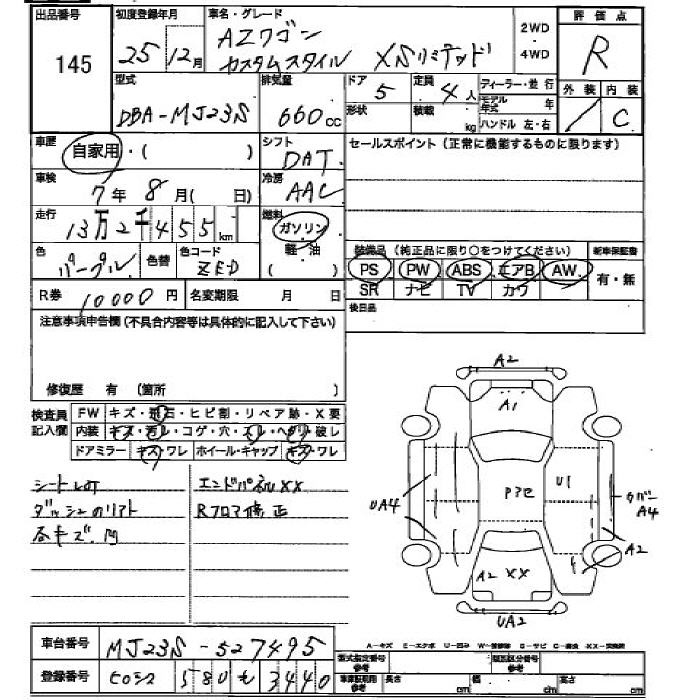 出品番号 初度登録年月 車名・グレード 評価点
145 25 12月 AZワゴン カスタムスタイル XSリミテッド 2WD・4WD R
型式 排気量 ドア 定員 ディーラー・並行 外装 内装
DBA-MJ23S 660cc 5 4人 モデル年式 年 / C
形状 積載 kg ハンドル 左・右
車歴 自家用・( ) シフト DAT セールスポイント(正常に機能するものに限ります)
車検 7年8月( 日) 冷房 AAC
走行 13万2千455km 燃料 ガソリン・軽・油 ( )
色 パープル 色替 色コード ZED
装備品(純正品に限り○をつけてください) 新車保証書
PS PW ABS エアB AW 有・無
SR ナビ TV カワ
R券 10000円 名変期限 月 日 後日品
注意事項申告欄(不具合内容等は具体的に記入して下さい)
修復歴 有 (箇所 )
検査員記入欄 FW キズ・飛石・ヒビ割・リペア跡・X要
内装 キズ・汚レ・コゲ・穴・スレ・ヘタリ・破レ
ドアミラー キズ・ワレ ホイール・キャップ キズ・ワレ
エンドパネルXX
Rフロア修正
A2
A1
UA4
U1
A4
A2
A2 XX
UA2
車台番号 MJ23S-527495
登録番号 580 3440
A-キズ
型式指定番号 参考
類別区分番号 参考
長さ cm 幅 cm 高さ cm